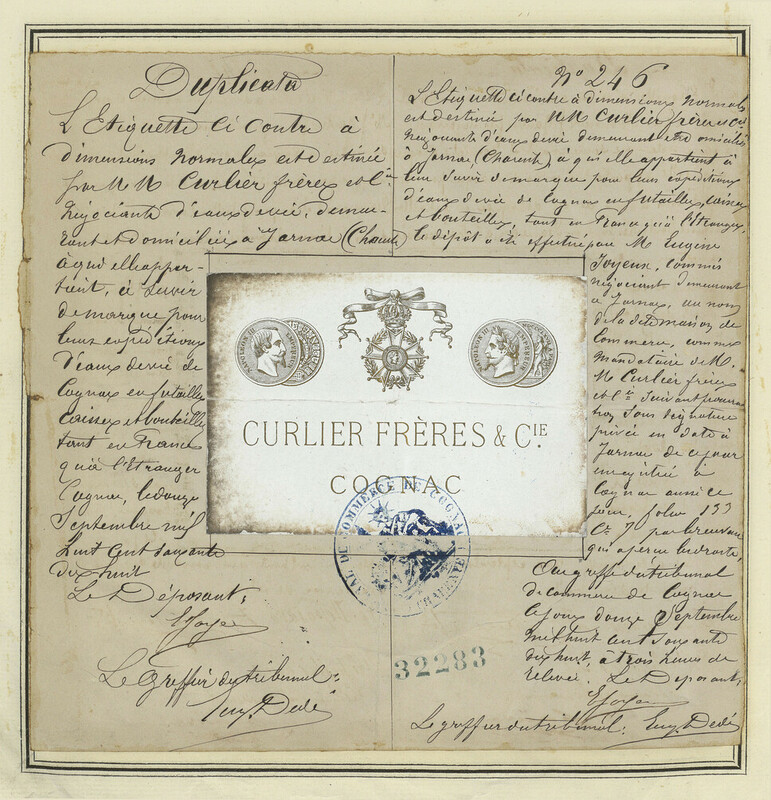 Duplicata
L'Etiquette ci contre à
dimensions normales est destinée
par M M Curlier frères et Cie
Négociants d'eaux de vie, demeu-
rant et domiciliés à Jarnac (Charente)
à qui elle appar-
tient, à servir
de marque pour
leurs expéditions
d'eaux de vie de
Cognac en futailles
caisses et bouteilles
tant en France
qu'à l'Etranger
Cognac, le douze
Septembre mil
huit cent soixante
dix huit
Le Déposant,
Le Greffier du tribunal:
Eug. Dedé
No 246
L'Etiquette ci contre à dimensions normales
est destinée par M M Curlier frères et Cie
Négociants d'eaux de vie demeurant et domiciliés
à Jarnac, (Charente) à qui elle appartient à
leur servir de marque pour leurs expéditions
d'eaux de vie de Cognac en futailles, caisses
et bouteilles, tant en France qu'à l'Etranger,
le dépôt a été effectué par M. Eugène
Joyeux, commis
négociant demeurant
à Jarnac, au nom
de la dite maison de
Commerce, comme
mandataire de M.
M Curlier frères
et Cie suivant pouvoir
sous seing
privé en date à
Jarnac de ce jour
enregistré à
Cognac
folio 133
Ce 7
Au greffe du tribunal
de commerce de Cognac
ce jour douze Septembre
mil huit cent soixante
dix huit, à trois heures de
relevée. Le Déposant,
Le greffier du tribunal: Eug. Dedé
NAPOLEON III EMPEREUR
NAPOLEON III EMPEREUR
CURLIER FRÈRES & CIE.
COGNAC
TRIBUNAL DE COMMERCE DE COGNAC
CHARENTE
32283